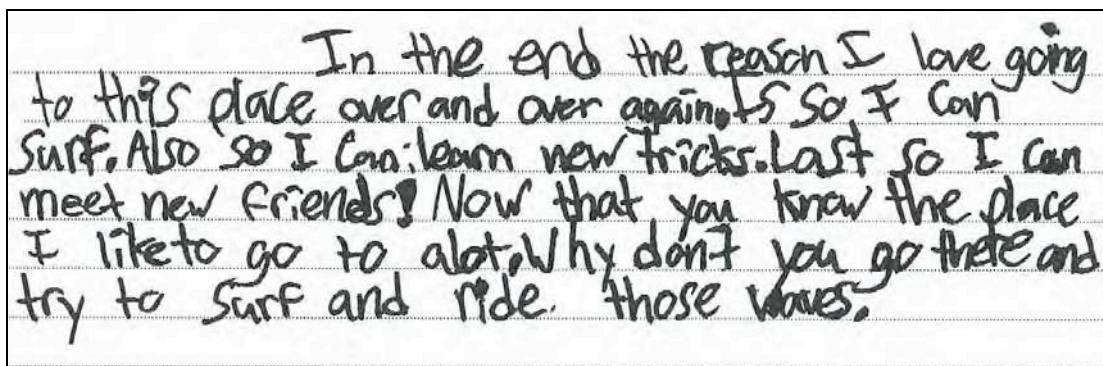 In the end the reason I love going
to this place over and over again. Is so I can
surf. Also so I can learn new tricks. Last so I can
meet new friends! Now that you know the place
I like to go to alot. Why don't you go there and
try to surf and ride. those waves.